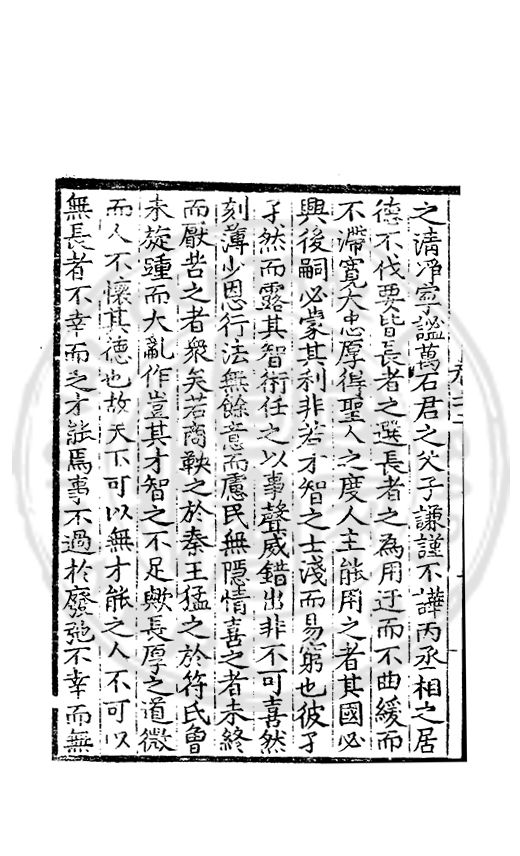 之清淨寧謐萬石君之父子謙謹不譁丙丞相之居
德不伐要皆長者之選長者之為用迂而不曲緩而
不滯寬大忠厚得聖人之度人主能用之者其國必
興後嗣必蒙其利非若才智之士淺而易窮也彼孑
孑然而露其智術任之以事聲威錯出非不可喜然
刻薄少恩行法無餘意而慮民無隱情喜之者未終
而厭苦之者衆矣若商鞅之於秦王猛之於符氏曾
未旋踵而大亂作豈其才智之不足歟長厚之道微
而人不懷其德也故天下可以無才能之人不可以
無長者不幸而乏才能焉事不過於廢弛不幸而無